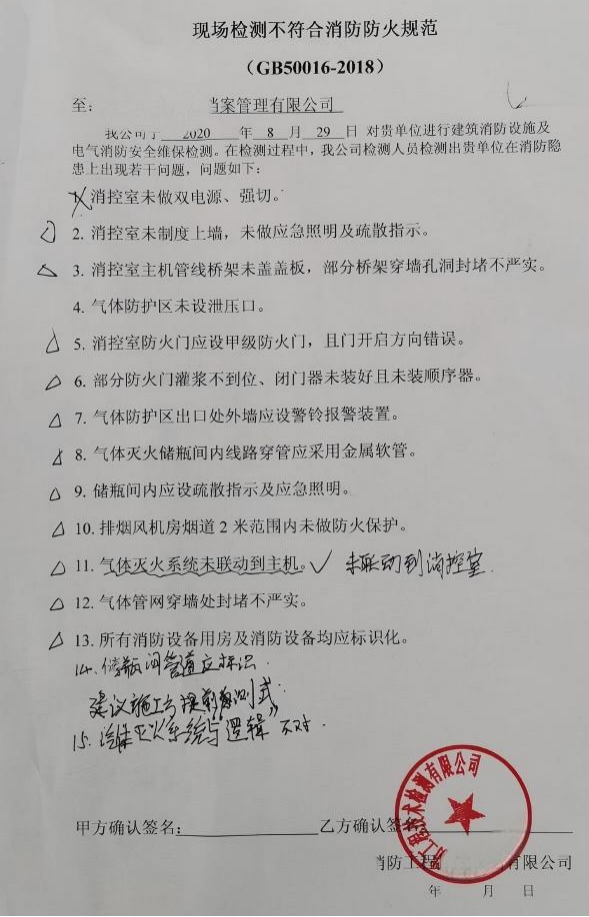 现场检测不符合消防防火规范
（GB50016-2018）
至： 档案管理有限公司
我公司于 2020 年 8 月 29 日 对贵单位进行建筑消防设施及
电气消防安全维保检测。在检测过程中，我公司检测人员检测出贵单位在消防隐
患上出现若干问题，问题如下：
消控室未做双电源、强切。
2. 消控室未制度上墙，未做应急照明及疏散指示。
3. 消控室主机管线桥架未盖盖板，部分桥架穿墙孔洞封堵不严实。
4. 气体防护区未设泄压口。
5. 消控室防火门应设甲级防火门，且门开启方向错误。
6. 部分防火门灌浆不到位、闭门器未装好且未装顺序器。
7. 气体防护区出口处外墙应设警铃报警装置。
8. 气体灭火储瓶间内线路穿管应采用金属软管。
9. 储瓶间内应设疏散指示及应急照明。
10. 排烟风机房烟道 2 米范围内未做防火保护。
11. 气体灭火系统未联动到主机。✓ 未联动到消控室.
12. 气体管网穿墙处封堵不严实。
13. 所有消防设备用房及消防设备均应标识化。
14、储瓶间管道应标识.
建议施工方提前测试.
15. 气体灭火系统 逻辑 不对.
甲方确认签名： 乙方确认签名
技术检测有限公司
消防工程 有限公司
年 月 日